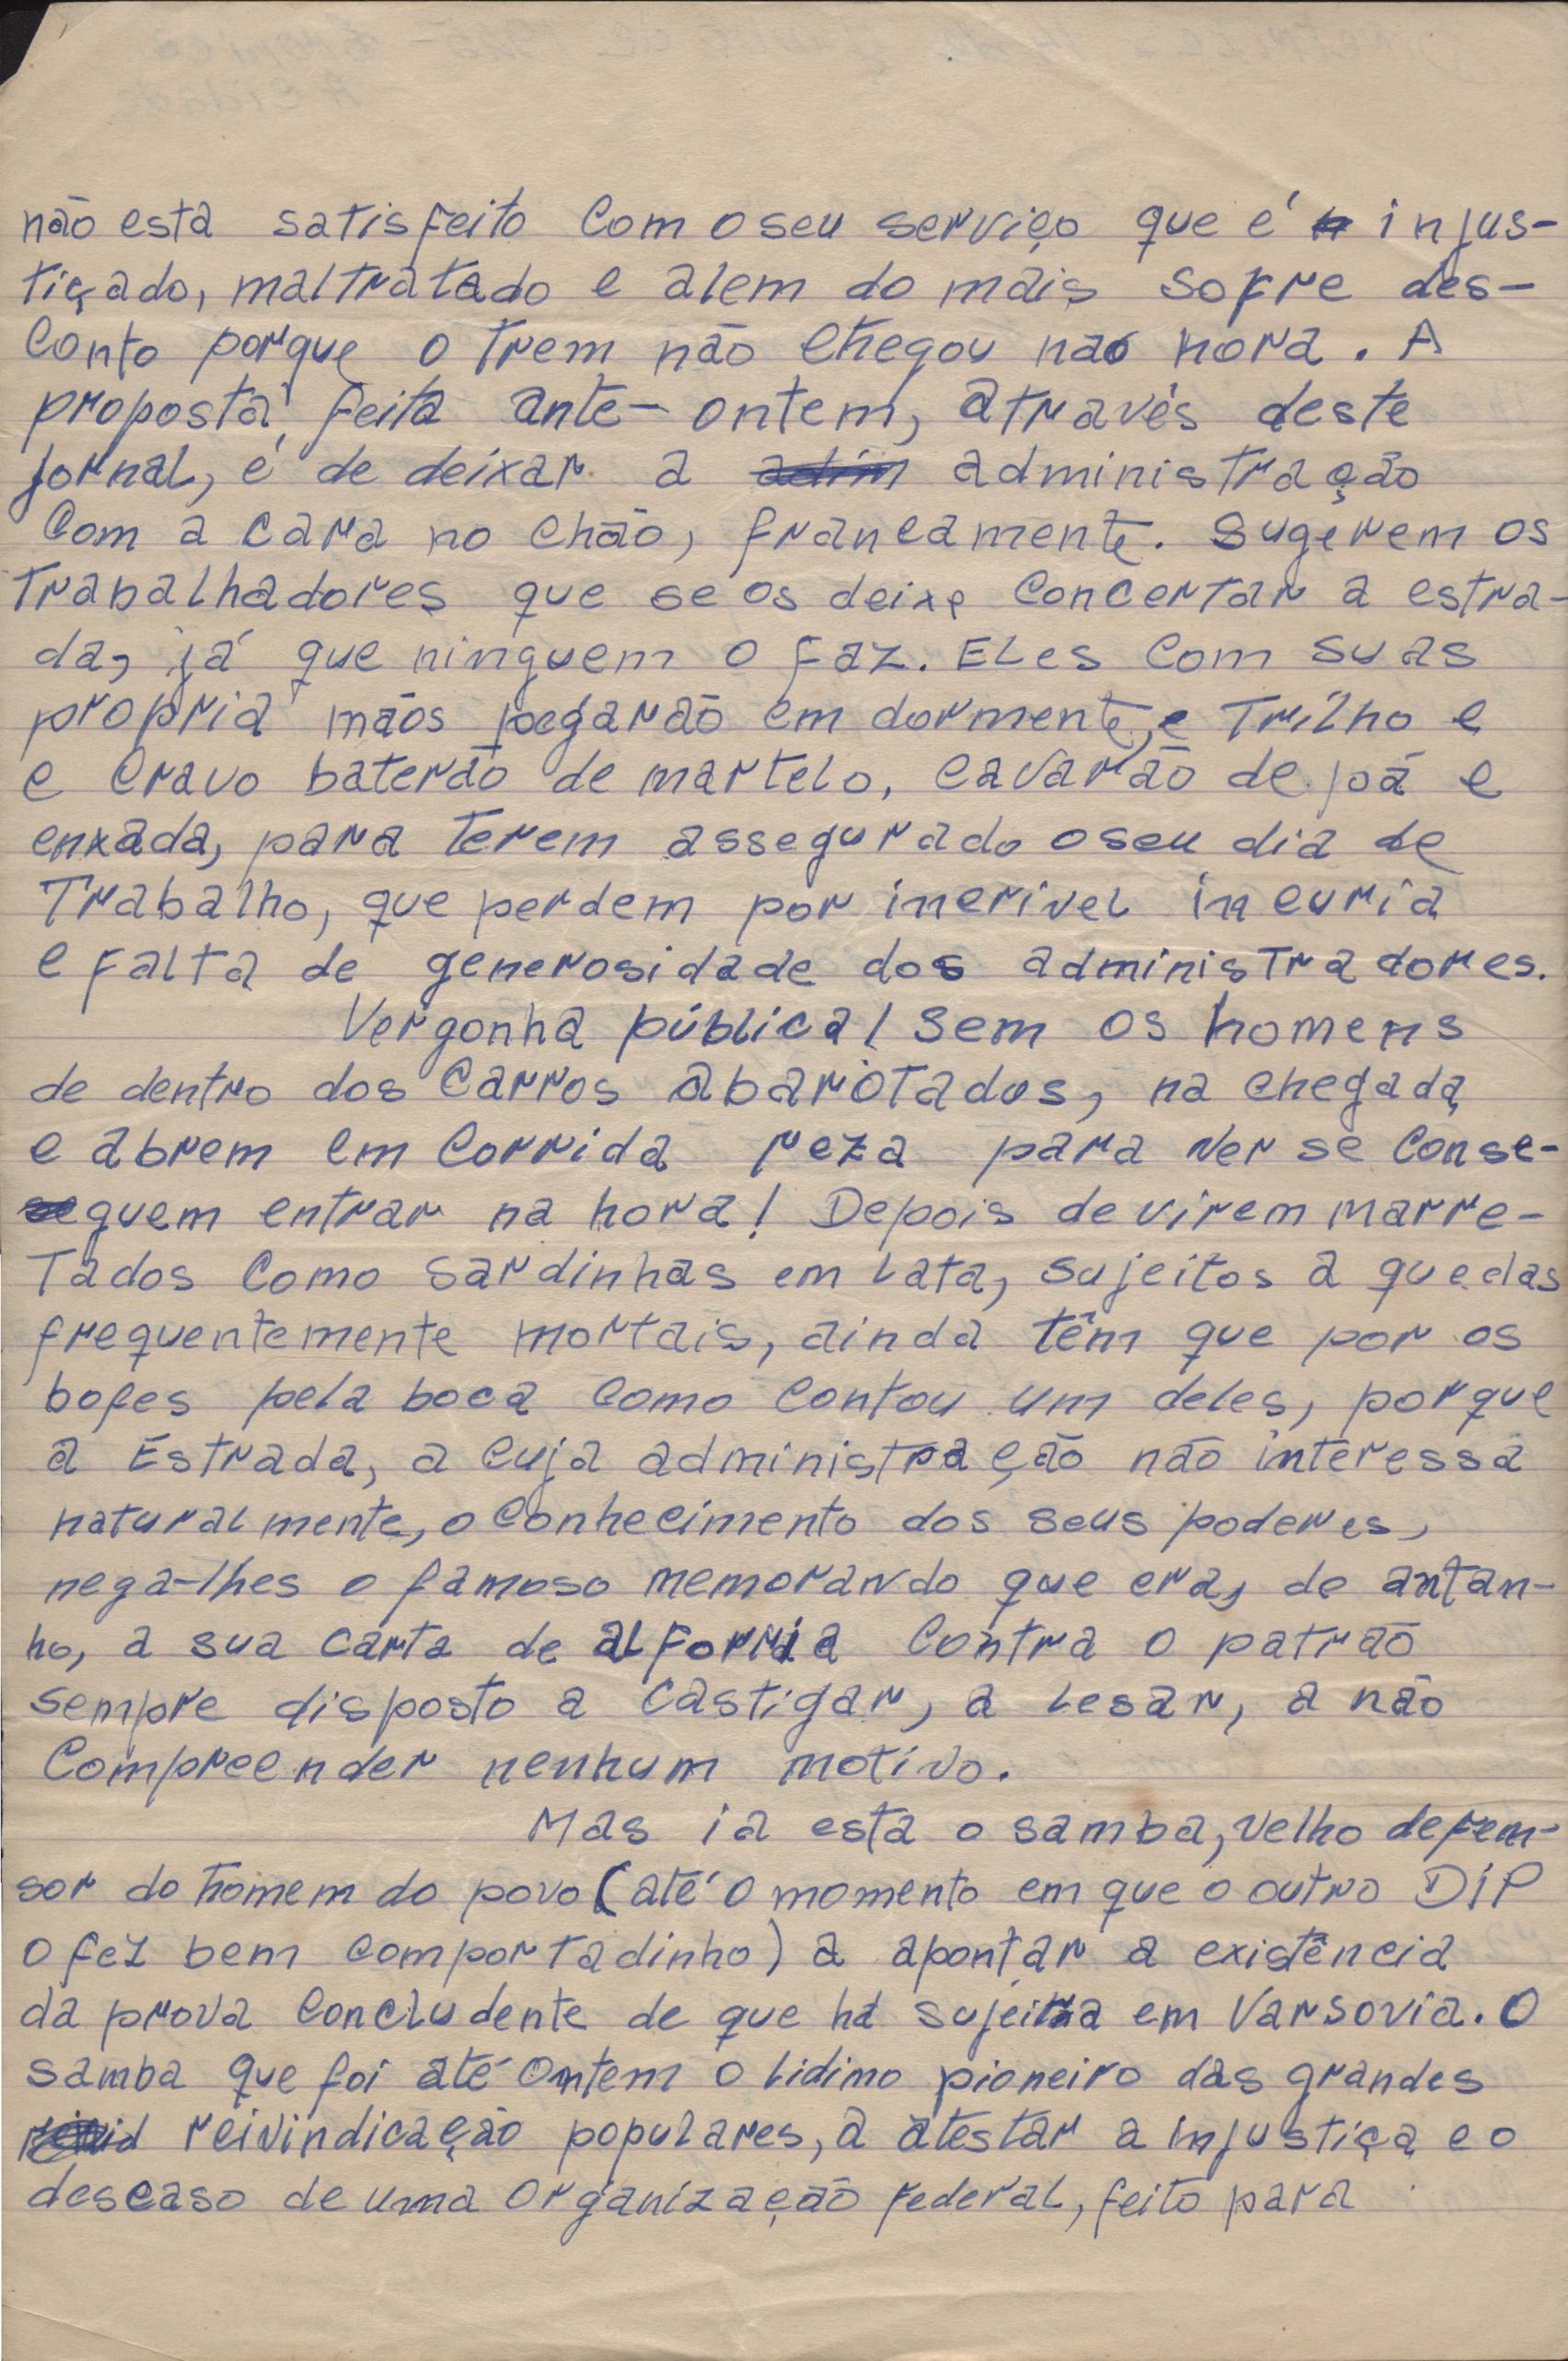 não esta satisfeito com o seu serviço que é injus-
tiçado, maltratado e alem do mais sofre des-
conto porque o trem não chegou nao hora. A
proposta, feita ante-ontem, através deste
jornal, é de deixar a adim administração
com a cara no chão, francamente. Sugerem os
trabalhadores que se os deixe concertar a estra-
da, já que ninguem o faz. Eles com suas
propria mãos pegarão em dormente, e trilho e
e cravo baterão de martelo, cavarão de pá e
enxada, para terem assegurado o seu dia de
trabalho, que perdem por incrivel incuria
e falta de generosidade dos administradores.
Vergonha pública! Sem os homens
de dentro dos carros abarotados, na chegada
e abrem em corrida reza para ver se conse-
se guem entrar na hora! Depois de virem marre-
tados como sardinhas em lata, sujeitos a quedas
frequentemente mortais, ainda têm que por os
bofes pela boca como contou um deles, porque
a Estrada, a cuja administração não interessa
naturalmente, o conhecimento dos seus poderes,
nega-lhes o famoso memorando que era, de antan-
ho, a sua carta de alforria contra o patrão
sempre disposto a castigar, a lesar, a não
compreender nenhum motivo.
Mas ia esta o samba, velho defem-
sor do homem do povo (até o momento em que o outro DIP
o fez bem comportadinho) a apontar a existência
da prova concludente de que há sujeira em Varsovia. O
samba que foi até ontem o lidimo pioneiro das grandes
reivindicação populares, a atestar a injustiça e o
descaso de uma organização federal, feito para